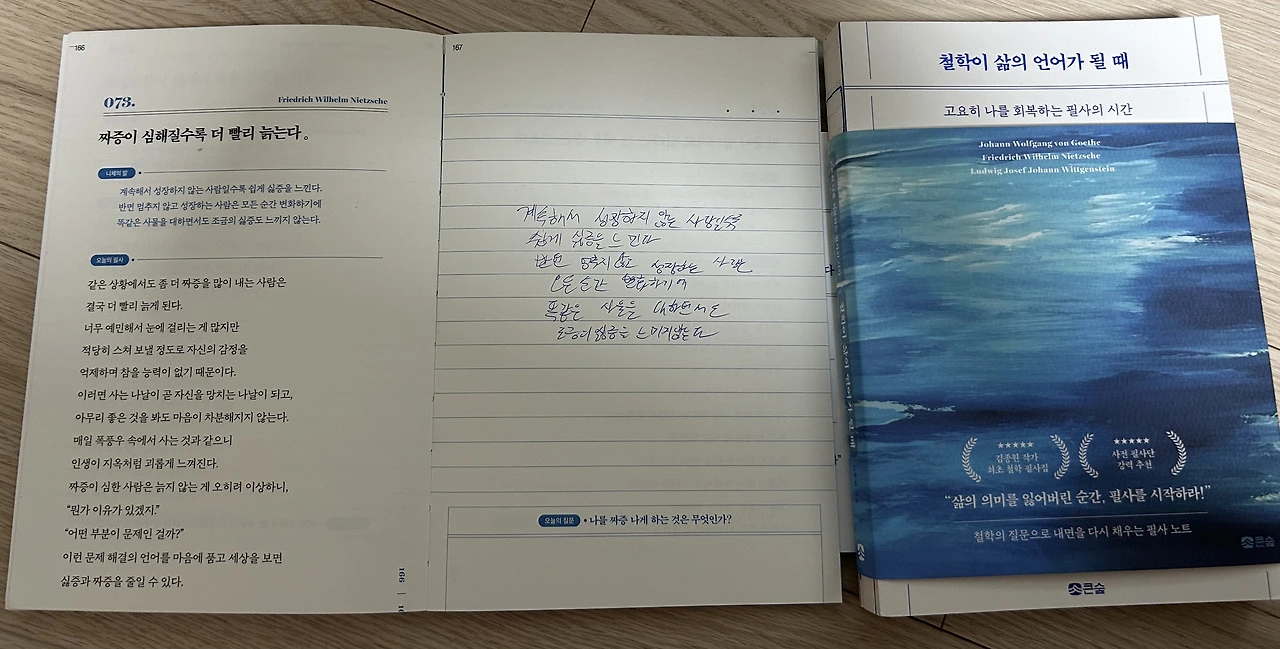 166
073.
Friedrich Wilhelm Nietzsche
짜증이 심해질수록 더 빨리 늙는다.
니체의 말
계속해서 성장하지 않는 사람일수록 쉽게 싫증을 느낀다.
반면 멈추지 않고 성장하는 사람은 모든 순간 변화하기에
똑같은 사물을 대하면서도 조금의 싫증도 느끼지 않는다.
오늘의 필사
같은 상황에서도 좀 더 짜증을 많이 내는 사람은
결국 더 빨리 늙게 된다.
너무 예민해서 눈에 걸리는 게 많지만
적당히 스쳐 보낼 정도로 자신의 감정을
억제하며 참을 능력이 없기 때문이다.
이러면 사는 나날이 곧 자신을 망치는 나날이 되고,
아무리 좋은 것을 봐도 마음이 차분해지지 않는다.
매일 폭풍우 속에서 사는 것과 같으니
인생이 지옥처럼 괴롭게 느껴진다.
짜증이 심한 사람은 늙지 않는 게 오히려 이상하니,
“뭔가 이유가 있겠지.”
“어떤 부분이 문제인 걸까?”
이런 문제 해결의 언어를 마음에 품고 세상을 보면
싫증과 짜증을 줄일 수 있다.
166
167
계속해서 성장하지 않는 사람일수록
쉽게 싫증을 느낀다
반면 멈추지 않고 성장하는 사람은
모든 순간 변화하기에
똑같은 사물을 대하면서도
조금의 싫증을 느끼지 않는다
오늘의 질문
나를 짜증 나게 하는 것은 무엇인가?
철학이 삶의 언어가 될 때
고요히 나를 회복하는 필사의 시간
Johann Wolfgang von Goethe
Friedrich Wilhelm Nietzsche
Ludwig Josef Johann Wittgenstein
철학이 삶의 언어가 될 때
김종원 작가
최초 철학 필사집
사전 필사단
강력 추천
“삶의 의미를 잃어버린 순간, 필사를 시작하라!”
철학의 질문으로 내면을 다시 채우는 필사 노트
큰숲
큰숲